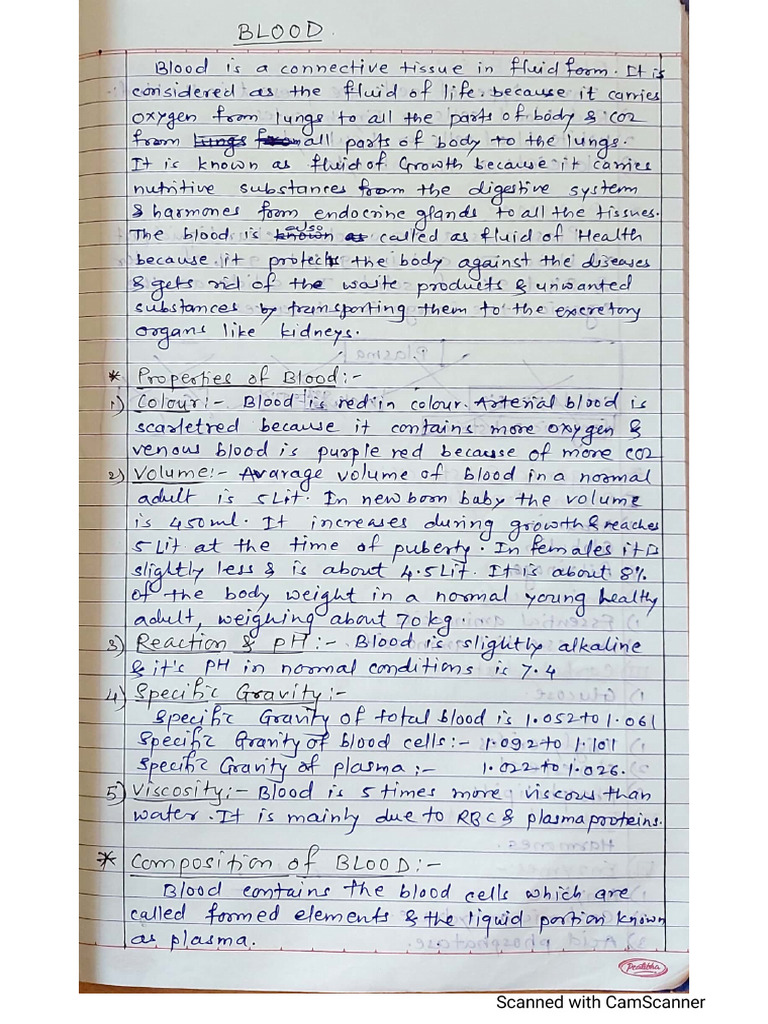 BLOOD.
Blood is a connective tissue in fluid form. It is
considered as the fluid of life. because it carries
oxygen from lungs to all the parts of body & co2
from lungs from all parts of body to the lungs.
It is known as fluid of Growth because it carries
nutritive substances from the digestive system
& harmones from endocrine glands to all the tissues.
The blood is known as also called as fluid of Health
because it protects the body against the diseases
& gets rid of the waste products & unwanted
substances by transporting them to the excretory
organs like kidneys.
* Properties of Blood:-
1) Colour:- Blood is red in colour. Arterial blood is
scarletred because it contains more oxygen &
venous blood is purple red because of more co2
2) Volume:- Avarage volume of blood in a normal
adult is 5Lit. In new born baby the volume
is 450ml. It increases during growth & reaches
5 Lit at the time of puberty. In females it is
slightly less & is about 4.5Lit. It is about 8%
of the body weight in a normal young healthy
adult, weighing about 70 kg.
3) Reaction & pH:- Blood is slightly alkaline
& it's PH in normal conditions is 7.4
4) Specific Gravity:-
Specific Gravity of total blood is 1.052 to 1.061
Specific Gravity of blood cells:- 1.092 to 1.101
Specific Gravity of plasma:- 1.022 to 1.026.
5) Viscosity:- Blood is 5 times more viscous than
water. It is mainly due to RBC & plasma proteins.
* Composition of BLOOD:-
Blood contains the blood cells which are
called formed elements & the liquid portion known
as plasma.
Pratibha
Scanned with CamScanner